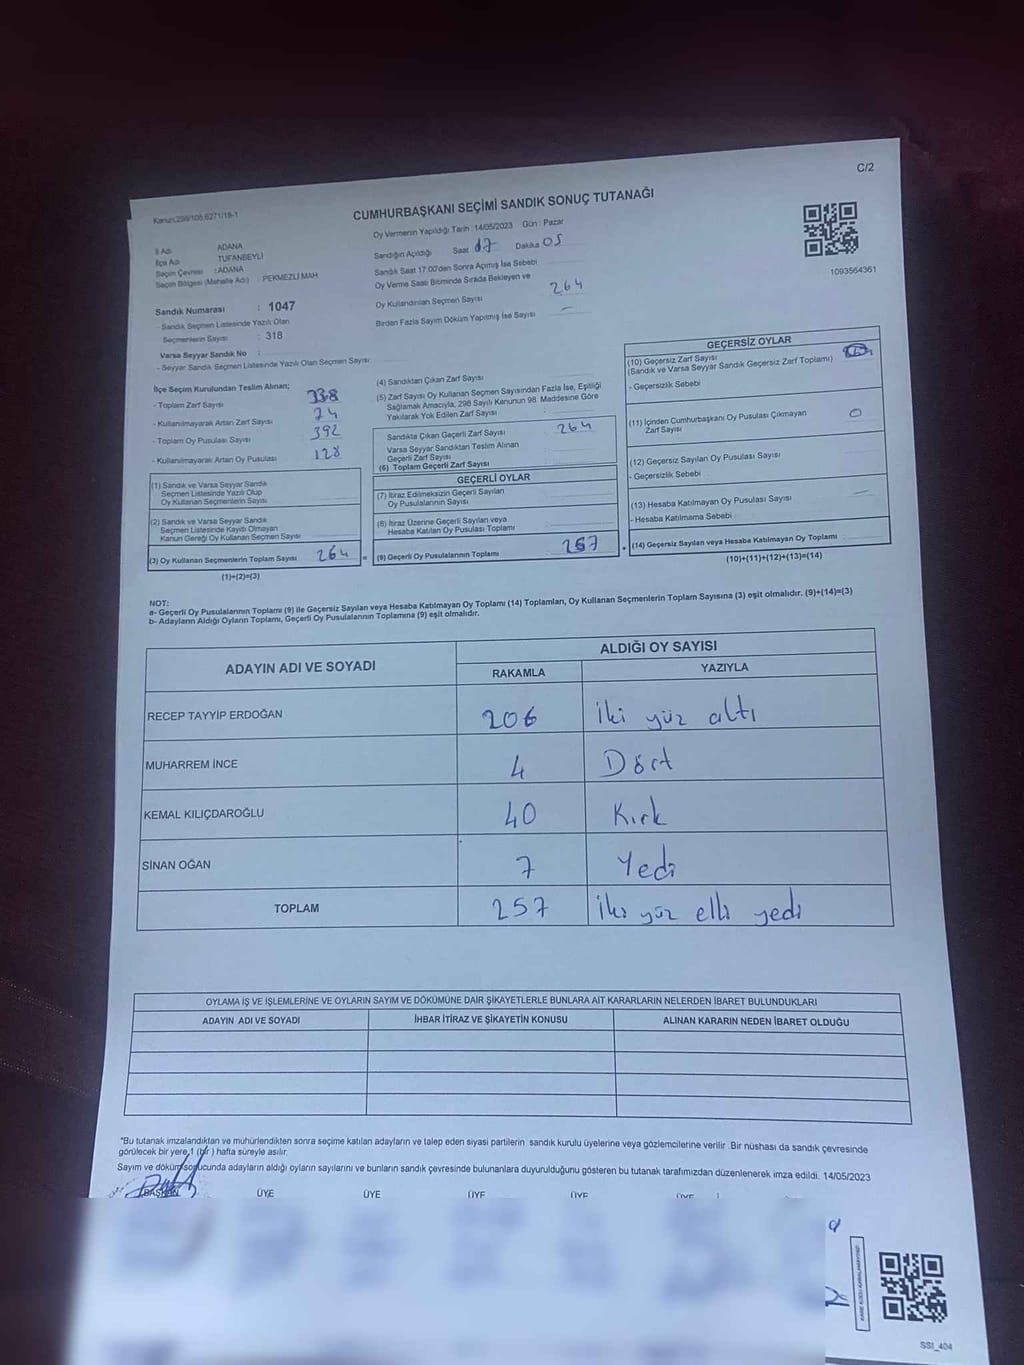 C/2
Kanun,298/105,6271/18-1
CUMHURBAŞKANI SEÇİMİ SANDIK SONUÇ TUTANAĞI
Oy Vermenin Yapıldığı Tarih : 14/05/2023 Gün : Pazar
İl Adı ADANA
İlçe Adı TUFANBEYLİ
Seçim Çevresi : ADANA
Seçim Bölgesi (Mahalle Adı) : PEKMEZLİ MAH
Sandığın Açıldığı Saat 17 Dakika 05
Sandık Saat 17:00'den Sonra Açımış İse Sebebi
Oy Verme Saati Bitiminde Sırada Bekleyen ve
Oy Kullandırılan Seçmen Sayısı 264
Birden Fazla Sayım Döküm Yapılmış İse Sayısı –
1093564361
Sandık Numarası : 1047
- Sandık Seçmen Listesinde Yazılı Olan
Seçmenlerin Sayısı : 318
Varsa Seyyar Sandık No :
- Seyyar Sandık Seçmen Listesinde Yazılı Olan Seçmen Sayısı:
İlçe Seçim Kurulundan Teslim Alınan;
- Toplam Zarf Sayısı 338
- Kullanılmayarak Artan Zarf Sayısı 74
- Toplam Oy Pusulası Sayısı 392
- Kullanılmayarak Artan Oy Pusulası 128
(1) Sandık ve Varsa Seyyar Sandık
Seçmen Listesinde Yazılı Olup
Oy Kullanan Seçmenlerin Sayısı
(2) Sandık ve Varsa Seyyar Sandık
Seçmen Listesinde Kayıtlı Olmayan
Kanun Gereği Oy Kullanan Seçmen Sayısı
(3) Oy Kullanan Seçmenlerin Toplam Sayısı 264 =
(1)+(2)=(3)
(4) Sandıktan Çıkan Zarf Sayısı
(5) Zarf Sayısı Oy Kullanan Seçmen Sayısından Fazla İse, Eşitliği
Sağlamak Amacıyla, 298 Sayılı Kanunun 98. Maddesine Göre
Yakılarak Yok Edilen Zarf Sayısı
Sandıkta Çıkan Geçerli Zarf Sayısı 264
Varsa Seyyar Sandıktan Teslim Alınan
Geçerli Zarf Sayısı
(6) Toplam Geçerli Zarf Sayısı
GEÇERLİ OYLAR
(7) İtiraz Edilmeksizin Geçerli Sayılan
Oy Pusulalarının Sayısı
(8) İtiraz Üzerine Geçerli Sayılan veya
Hesaba Katılan Oy Pusulası Toplamı
(9) Geçerli Oy Pusulalarının Toplamı 257 +
GEÇERSİZ OYLAR
(10) Geçersiz Zarf Sayısı
(Sandık ve Varsa Seyyar Sandık Geçersiz Zarf Toplamı)
- Geçersizlik Sebebi
(11) İçinden Cumhurbaşkanı Oy Pusulası Çıkmayan
Zarf Sayısı 0
(12) Geçersiz Sayılan Oy Pusulası Sayısı
- Geçersizlik Sebebi
(13) Hesaba Katılmayan Oy Pusulası Sayısı
- Hesaba Katılmama Sebebi
(14) Geçersiz Sayılan veya Hesaba Katılmayan Oy Toplamı
(10)+(11)+(12)+(13)=(14)
NOT:
a- Geçerli Oy Pusulalarının Toplamı (9) ile Geçersiz Sayılan veya Hesaba Katılmayan Oy Toplamı (14) Toplamları, Oy Kullanan Seçmenlerin Toplam Sayısına (3) eşit olmalıdır. (9)+(14)=(3)
b- Adayların Aldığı Oyların Toplamı, Geçerli Oy Pusulalarının Toplamına (9) eşit olmalıdır.
ADAYIN ADI VE SOYADI
ALDIĞI OY SAYISI
RAKAMLA YAZIYLA
RECEP TAYYİP ERDOĞAN 206 İki yüz altı
MUHARREM İNCE 4 Dört
KEMAL KILIÇDAROĞLU 40 Kırk
SİNAN OĞAN 7 Yedi
TOPLAM 257 İki yüz elli yedi
OYLAMA İŞ VE İŞLEMLERİNE VE OYLARIN SAYIM VE DÖKÜMÜNE DAİR ŞİKAYETLERLE BUNLARA AİT KARARLARIN NELERDEN İBARET BULUNDUKLARI
ADAYIN ADI VE SOYADI İHBAR İTİRAZ VE ŞİKAYETİN KONUSU ALINAN KARARIN NEDEN İBARET OLDUĞU
"Bu tutanak imzalandıktan ve mühürlendikten sonra seçime katılan adayların ve talep eden siyasi partilerin sandık kurulu üyelerine veya gözlemcilerine verilir .Bir nüshası da sandık çevresinde
görülecek bir yere,1 (bir ) hafta süreyle asılır.
Sayım ve döküm sonucunda adayların aldığı oyların sayılarını ve bunların sandık çevresinde bulunanlara duyurulduğunu gösteren bu tutanak tarafımızdan düzenlenerek imza edildi. 14/05/2023
BAŞKAN ÜYE ÜYE ÜYE ÜYE ÜYE
SSI_404